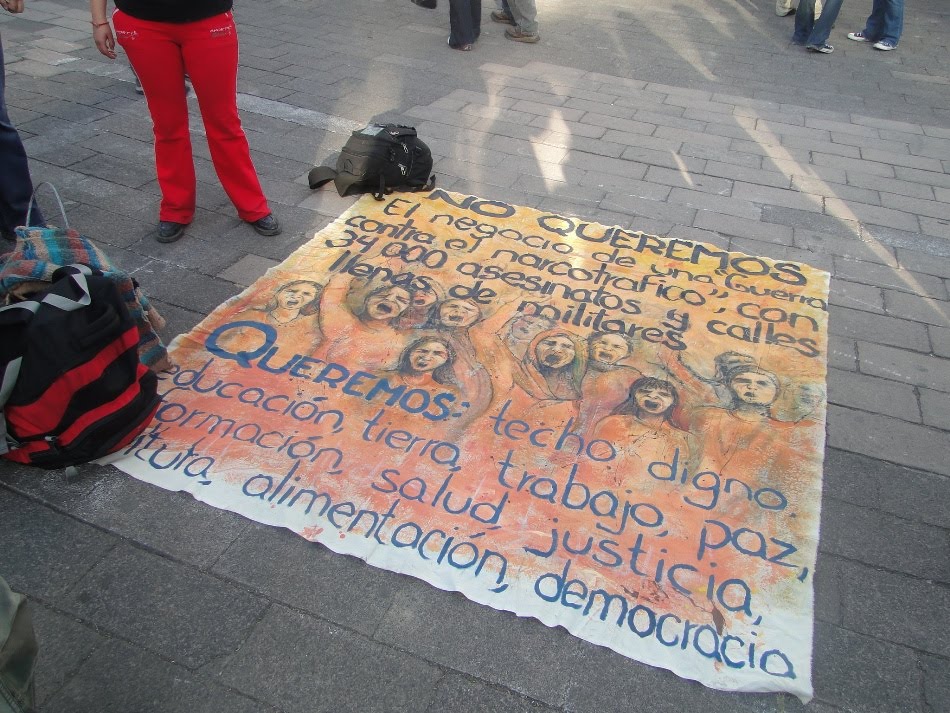 NO QUEREMOS
El negocio de una "Guerra
contra el narcotrafico", con
34 000 asesinatos y calles
llenas de militares
QUEREMOS: techo digno.
educación, tierra, trabajo, paz,
formación, salud, justicia,
alimentación, democracia